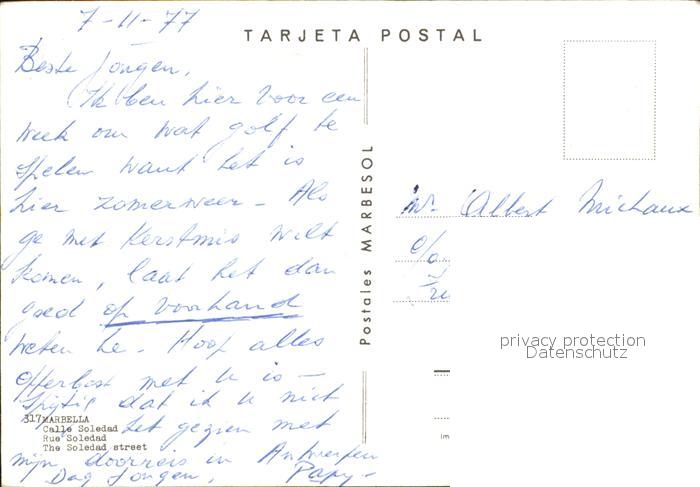 7-11-77
TARJETA POSTAL
Beste Jongen,
Ik ben hier voor een
week om wat golf te
spelen want het is
hier zomerweer - Als
ge met Kerstmis wilt
komen, laat het dan
goed op voorhand
weten he. Hoop alles
opperbest met u is -
Spijtig dat ik u niet
heb gezien met
mijn doorreis in Antwerpen
Dag Jongen, Papy-
317 MARBELLA
Calle Soledad
Rue Soledad
The Soledad street
Postales MARBESOL
Mr Albert Michaux
c/o
privacy protection
Datenschutz
Im